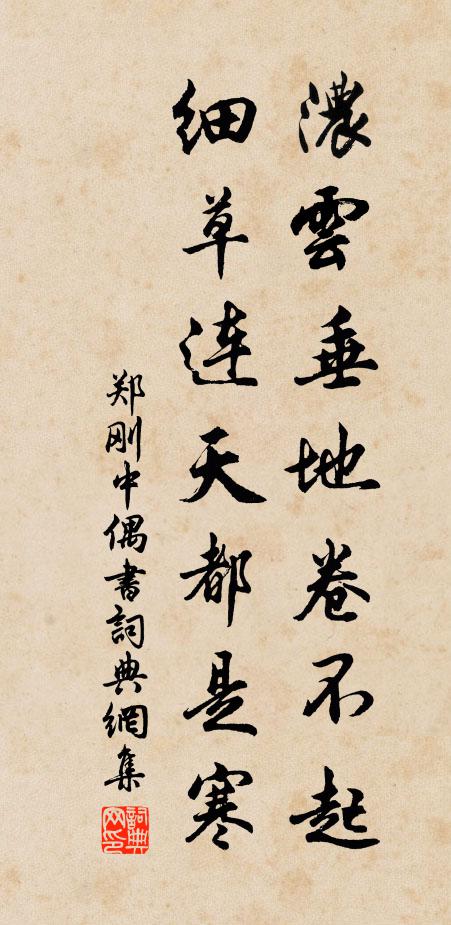 濃雲垂地卷不起
细草连天都是寒
郑刚中偶書詞典網集
詞典网印